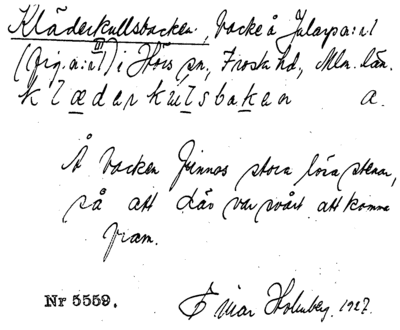 Kläderkullsbacken, backe å Jularpa:nl
(fig.a:nl) III i Hörs sn, Frosta hd, Mlm. län.
klæderkulsbaken a.
Å backen finnas stora lösa stenar,
så att där var svårt att komma
fram.
Nr 5559. Einar Holmberg. 1927.